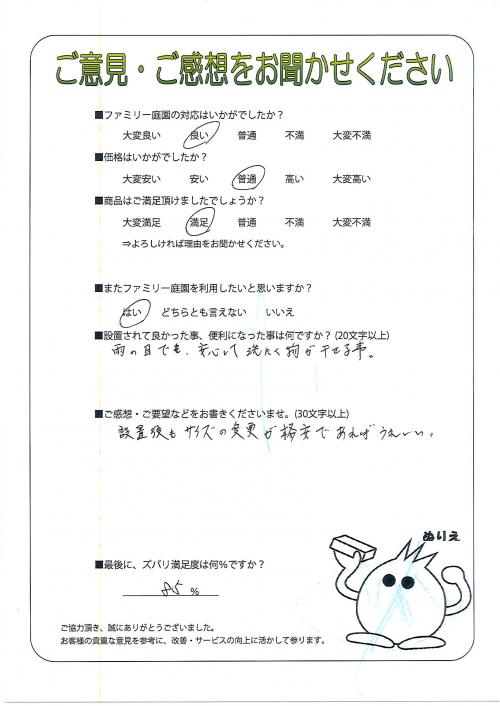 ご意見・ご感想をお聞かせください
■ファミリー庭園の対応はいかがでしたか？
大変良い 良い 普通 不満 大変不満
■価格はいかがでしたか？
大変安い 安い 普通 高い 大変高い
■商品はご満足頂けましたでしょうか？
大変満足 満足 普通 不満 大変不満
⇒よろしければ理由をお聞かせください。
■またファミリー庭園を利用したいと思いますか？
はい どちらとも言えない いいえ
■設置されて良かった事、便利になった事は何ですか？(20文字以上)
雨の日でも、安心して洗たく物が干せる事。
■ご感想・ご要望などをお書きくださいませ。(30文字以上)
設置後もサイズの変更が格安であればうれしい。
ぬりえ
■最後に、ズバリ満足度は何%ですか？
85 %
ご協力頂き、誠にありがとうございました。
お客様の貴重な意見を参考に、改善・サービスの向上に活かして参ります。